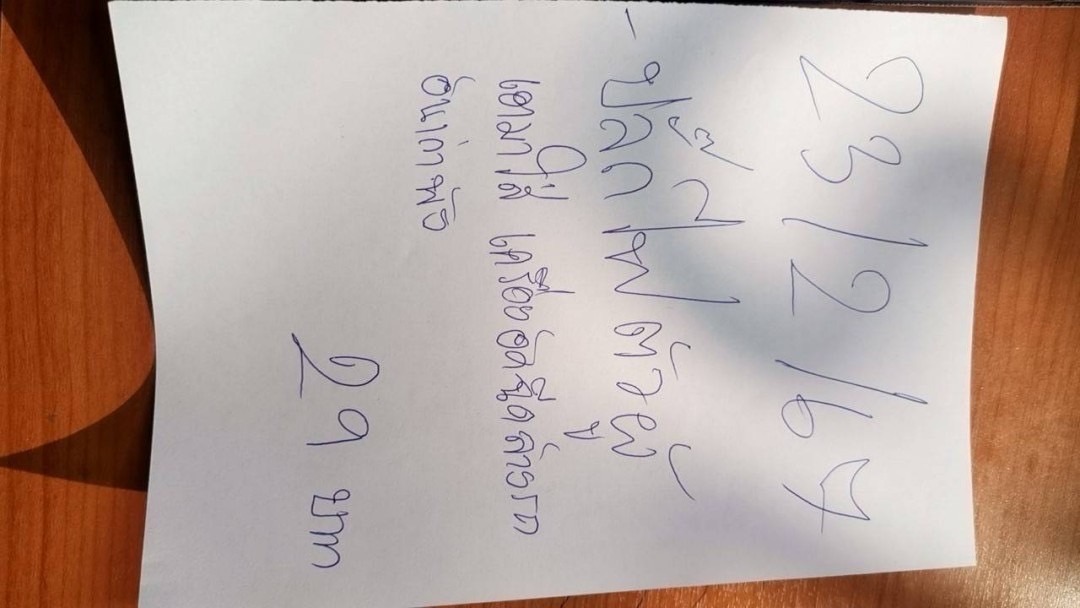 23/2/67
- ปลั๊กไฟ ตัวผู้
เอามาใส่ เครื่องอัดฉีดล้างรถ
อันเก่าพัง
29 บาท